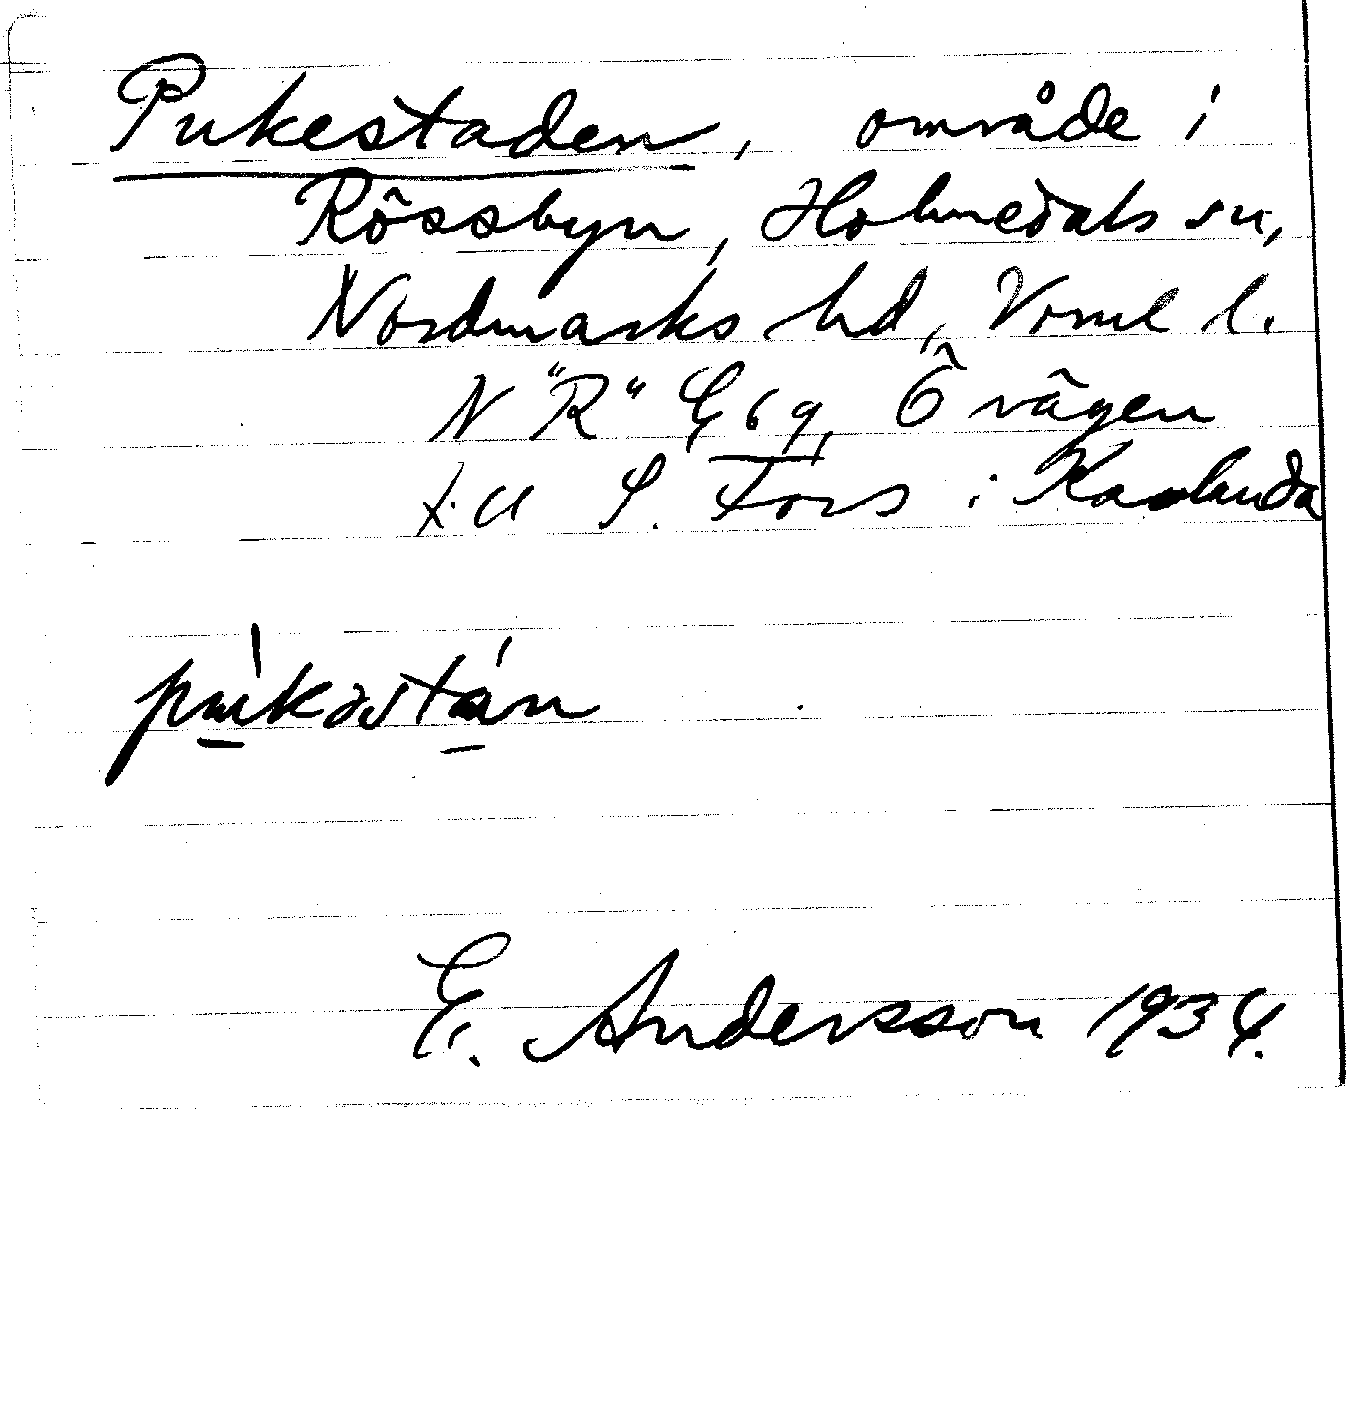 Pukestaden, område i
Rössbyn, Holmedals sn,
Nordmarks hd, Vrml l.
N "R" E 69, Ö vägen
t. ll S. Fors i Karlanda
pukəstan
E. Andersson 1934.